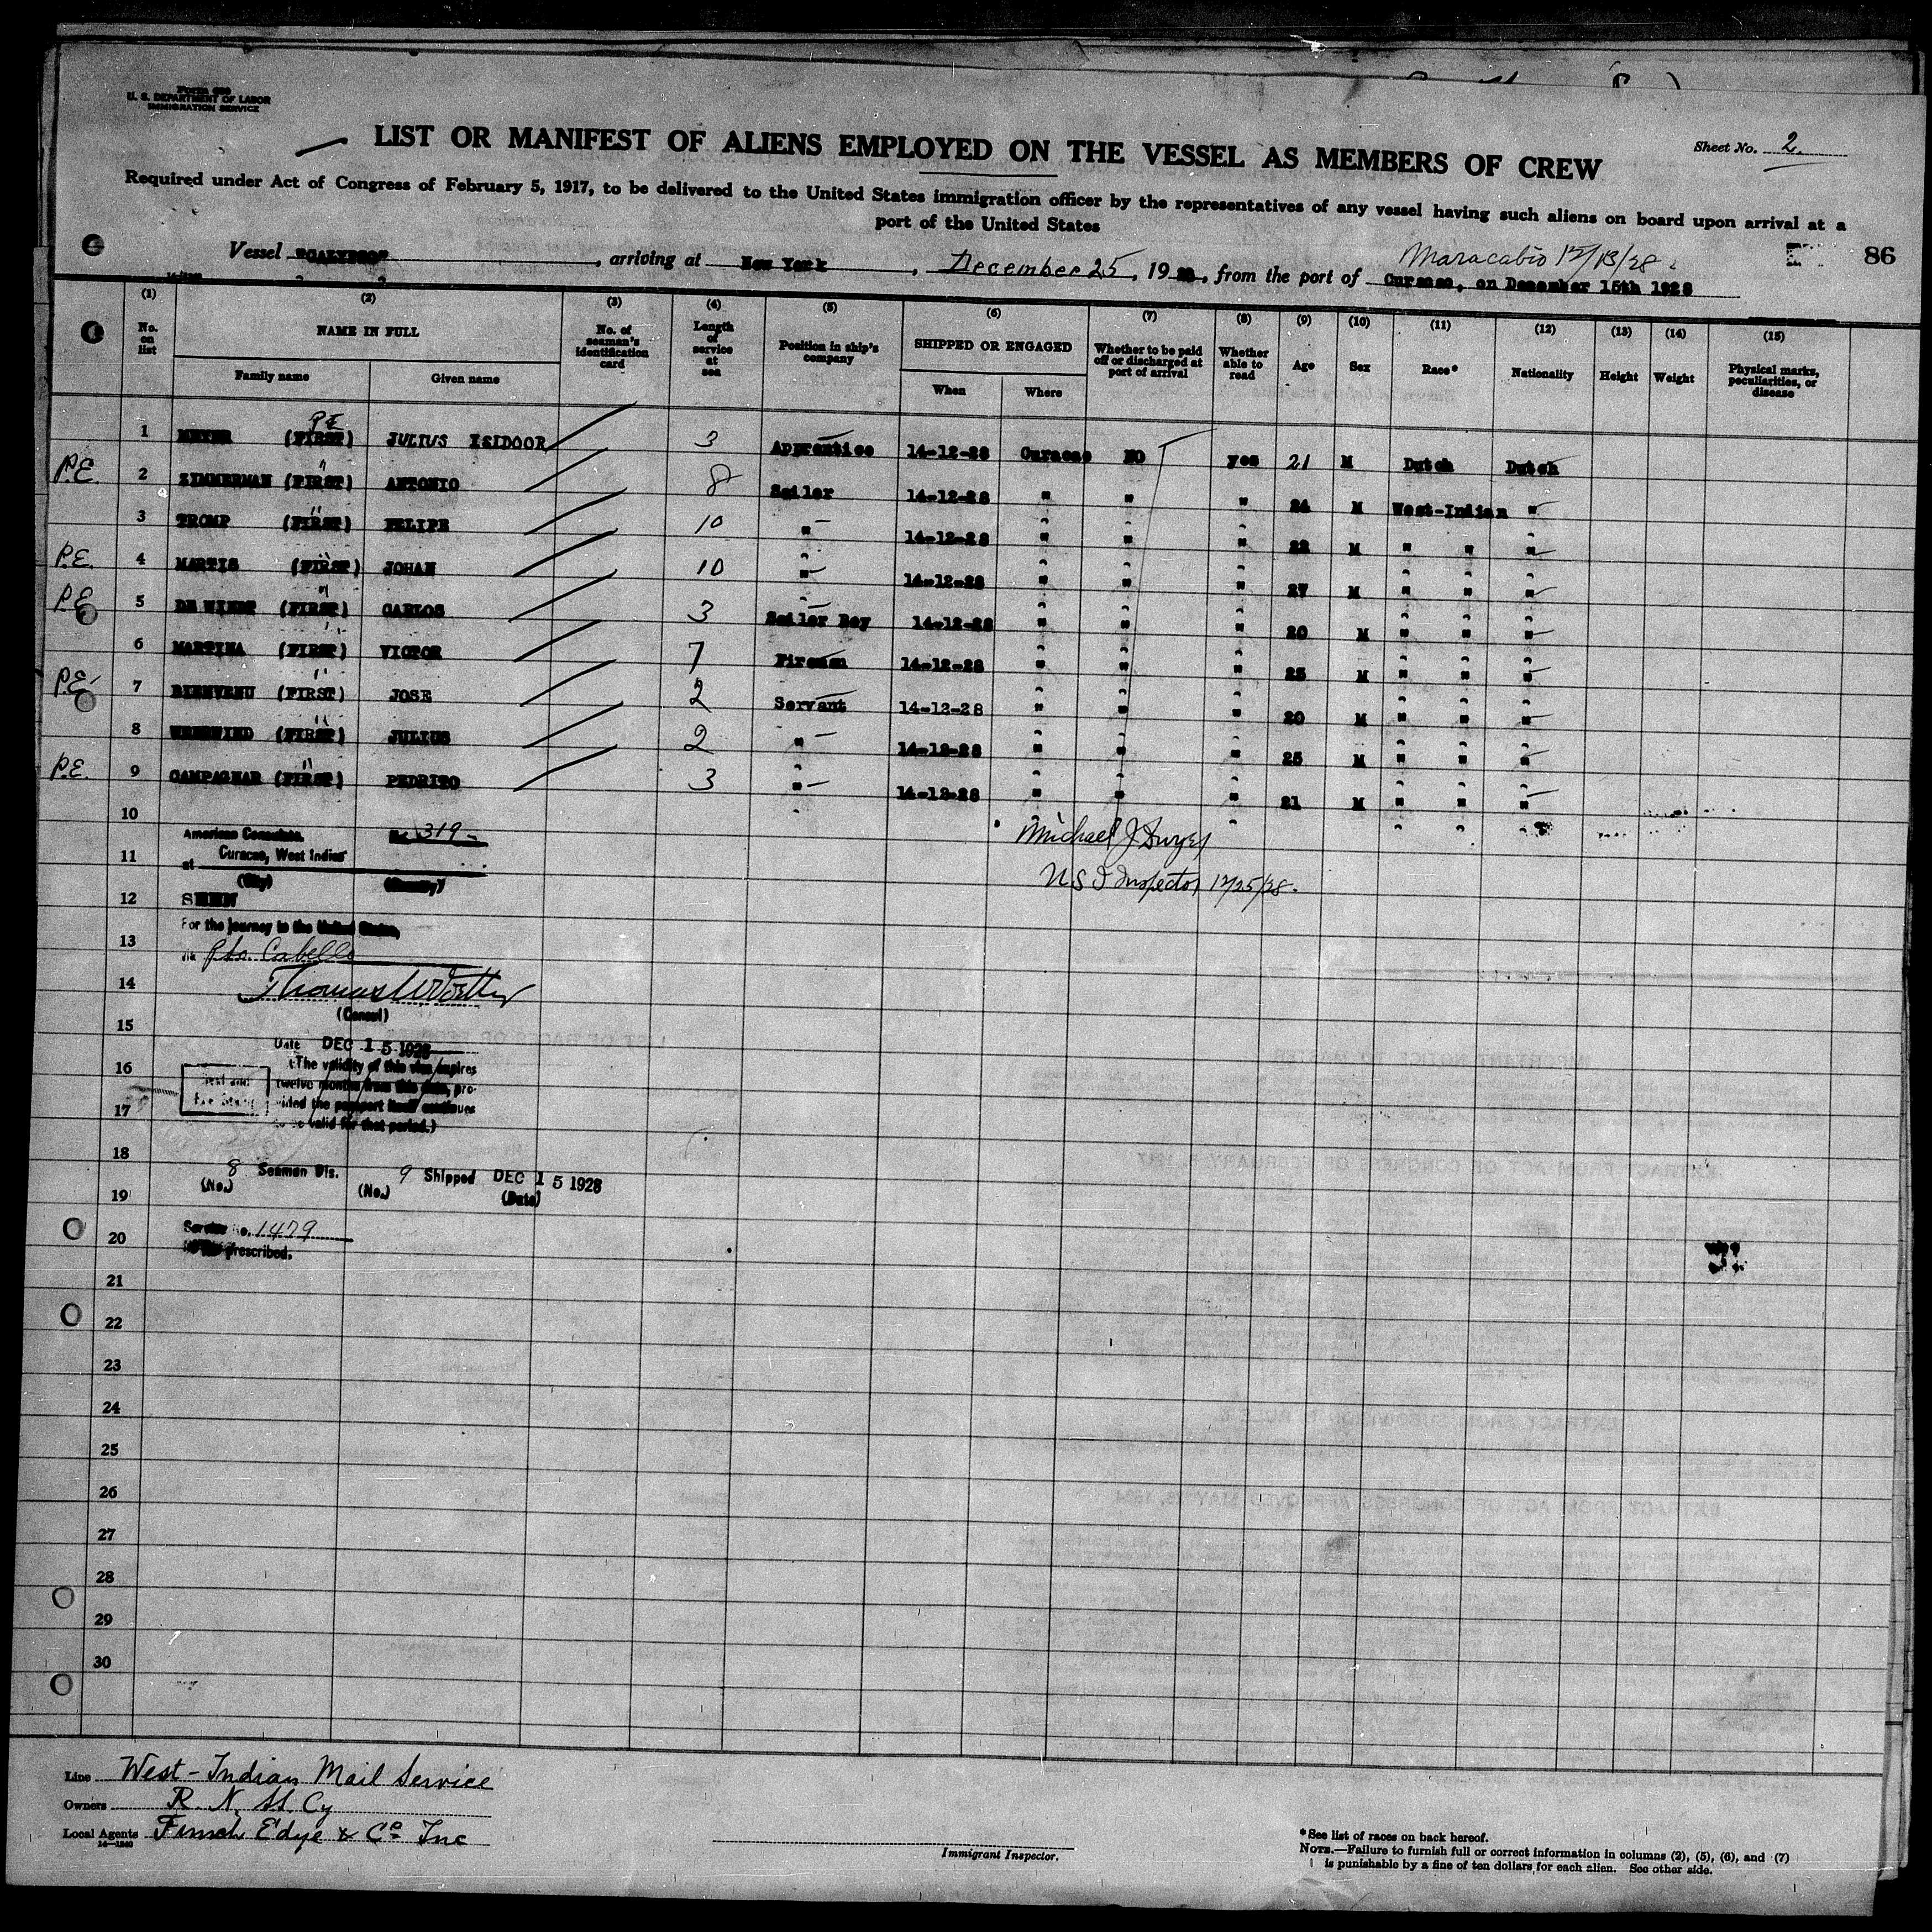 U. S. DEPARTMENT OF LABOR
IMMIGRATION SERVICE
LIST OR MANIFEST OF ALIENS EMPLOYED ON THE VESSEL AS MEMBERS OF CREW
Sheet No. 2.
Required under Act of Congress of February 5, 1917, to be delivered to the United States immigration officer by the representatives of any vessel having such aliens on board upon arrival at a
port of the United States
Maracabio 12/13/28
86
Vessel "CALYPSO", arriving at New York, December 25, 19 28, from the port of Curacao, on December 15th 1928
(1) (2) (3) (4) (5) (6) (7) (8) (9) (10) (11) (12) (13) (14) (15)
No. on list NAME IN FULL No. of seaman's identification card Length of service at sea Position in ship's company SHIPPED OR ENGAGED Whether to be paid off or discharged at port of arrival Whether able to read Age Sex Race* Nationality Height Weight Physical marks, peculiarities, or disease
Family name Given name When Where
P.E.
1 MEYER (FIRST) JULIUS ISIDOOR 3 Apprentice 14-12-28 Curacao NO yes 21 M Dutch Dutch
P.E. 2 ZIMMERMAN (FIRST) ANTONIO 8 Sailor 14-12-28 " " " 24 M West-Indian "
3 TROMP (FIRST) FELIPE 10 " 14-12-28 " " " 22 M " " "
P.E. 4 MARTIS (FIRST) JOHAN 10 " 14-12-28 " " " 27 M " " "
P.E. 5 DE WINDT (FIRST) CARLOS 3 Sailor Boy 14-12-28 " " " 20 M " " "
6 MARTINA (FIRST) VICTOR 7 Fireman 14-12-28 " " " 25 M " " "
P.E. 7 BIENVENU (FIRST) JOSE 2 Servant 14-12-28 " " " 20 M " " "
8 (FIRST) JULIUS 2 " 14-12-28 " " " 25 M " " "
P.E. 9 CAMPAGNAR (FIRST) PEDRITO 3 " 14-12-28 " " " 21 M " " "
10
American Consulate, No. 319
Michael J Dwyer
11
at Curacao, West Indies
(City) (Country)
U S I Inspector 12/25/28.
12
SEEN
For the journey to the United States,
13
via Pto. Cabello
14
Thomas W Voetter
(Consul)
15
Date DEC 15 1928
16
(The validity of this visa expires
twelve months from this date, pro-
17
vided the passport itself continues
to be valid for that period.)
Fee Stamp
18
8 Seamen Dis. 9 Shipped DEC 15 1928
(No.) (No.) (Date)
19
Service No. 1479
20
prescribed.
21
22
23
24
25
26
27
28
29
30
Line West-Indian Mail Service
Owners R. N. St. Cy
Local Agents Funch Edye & Co Inc
14-1240
Immigrant Inspector.
*See list of races on back hereof.
NOTE.—Failure to furnish full or correct information in columns (2), (5), (6), and (7)
is punishable by a fine of ten dollars for each alien. See other side.